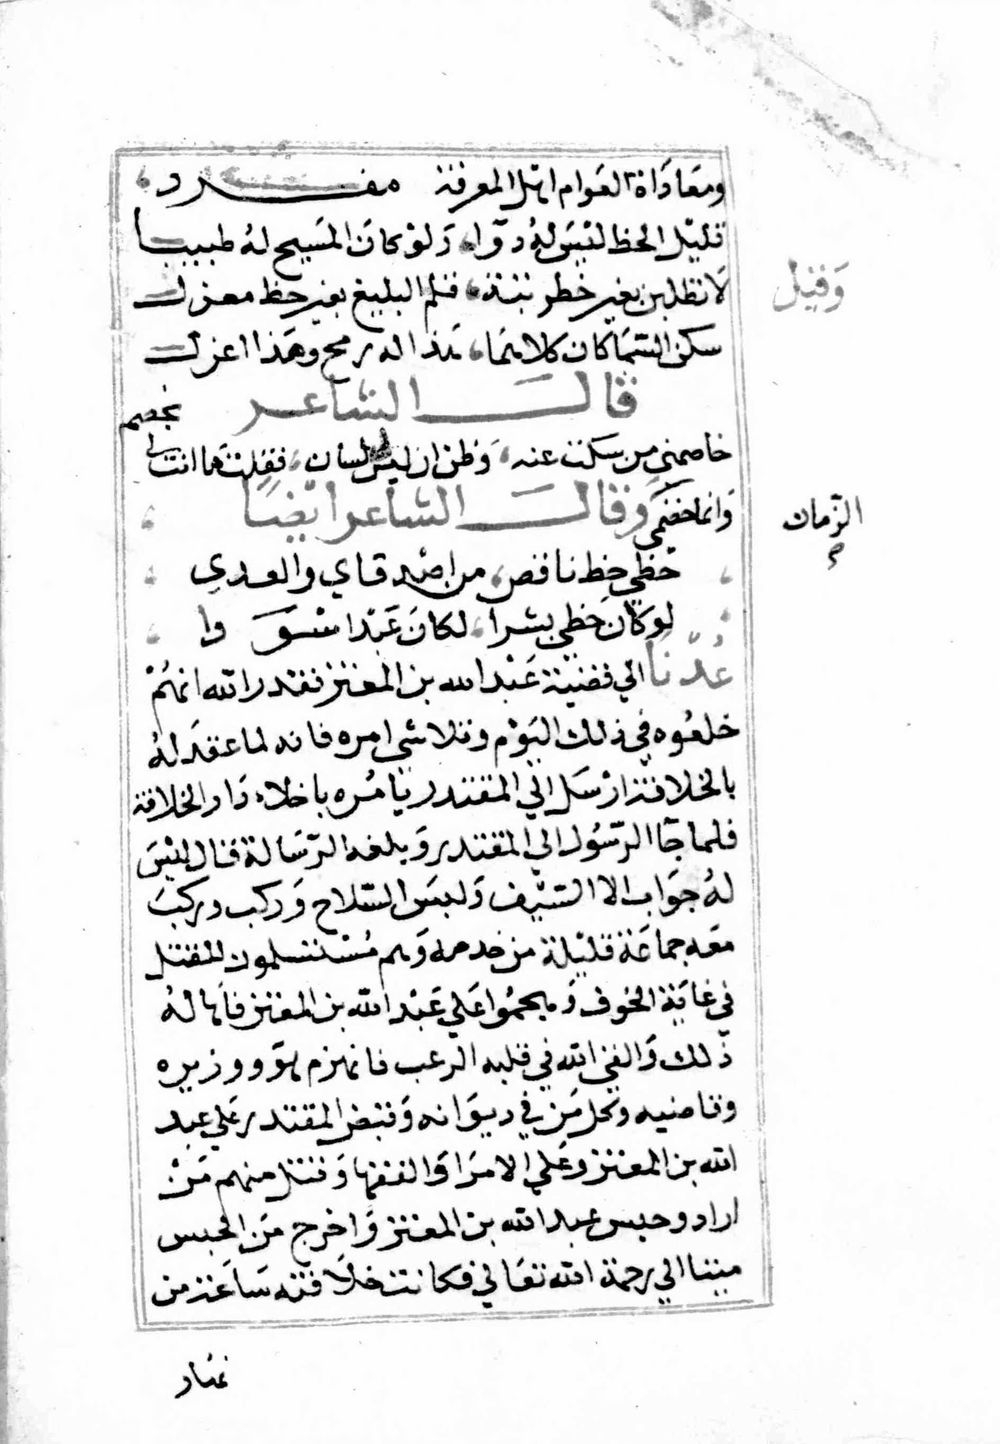 ومعاداة العوام اهل المعرفة مفرد
قليل الحظ ليس له دوا، ولو كان المسيح له طبيبا
وقيل
لا تطلبن بغير حظ رتبة، قلم البليغ بغير حظ مغزل
سكن السماكان كلاهما، هذا له رمح وهذا اعزل
قال الشاعر
خاصمني من سكت عنه، وظن ان ليس لي لسان، فقلت ما انت لي بخصم
وانما خصمي الزمان وقال الشاعر ايضا
حظي حظ ناقص، من اصدقاي والعدي
لو كان حظي بشرا، لكان عبدا اسودا
عدنا الي قضية عبد الله بن المعتز فقدر الله انهم
خلعوه في ذلك اليوم وتلاشي امره فانه لما عقد له
بالخلافة ارسل الي المقتدر يامره باخلاء دار الخلافة
فلما جآ الرسول الي المقتدر وبلغه الرسالة قال ليس
له جواب الا السيف ولبس السلاح وركب وركب
معه جماعة قليلة من خدمه وهم مستسلمون للقتل
في غاية الخوف وهجموا علي عبد الله بن المعتز فاهاله
ذلك والقي الله في قلبه الرعب فانهزم هو ووزيره
وقاضيه وكل من في ديوانه وقبض المقتدر علي عبد
الله بن المعتز وعلي الامرا والفقها وقتل منهم من
اراد وحبس عبد الله بن المعتز واخرج من الحبس
ميتا الي رحمة الله تعالي فكانت خلافته ساعة من
نهار